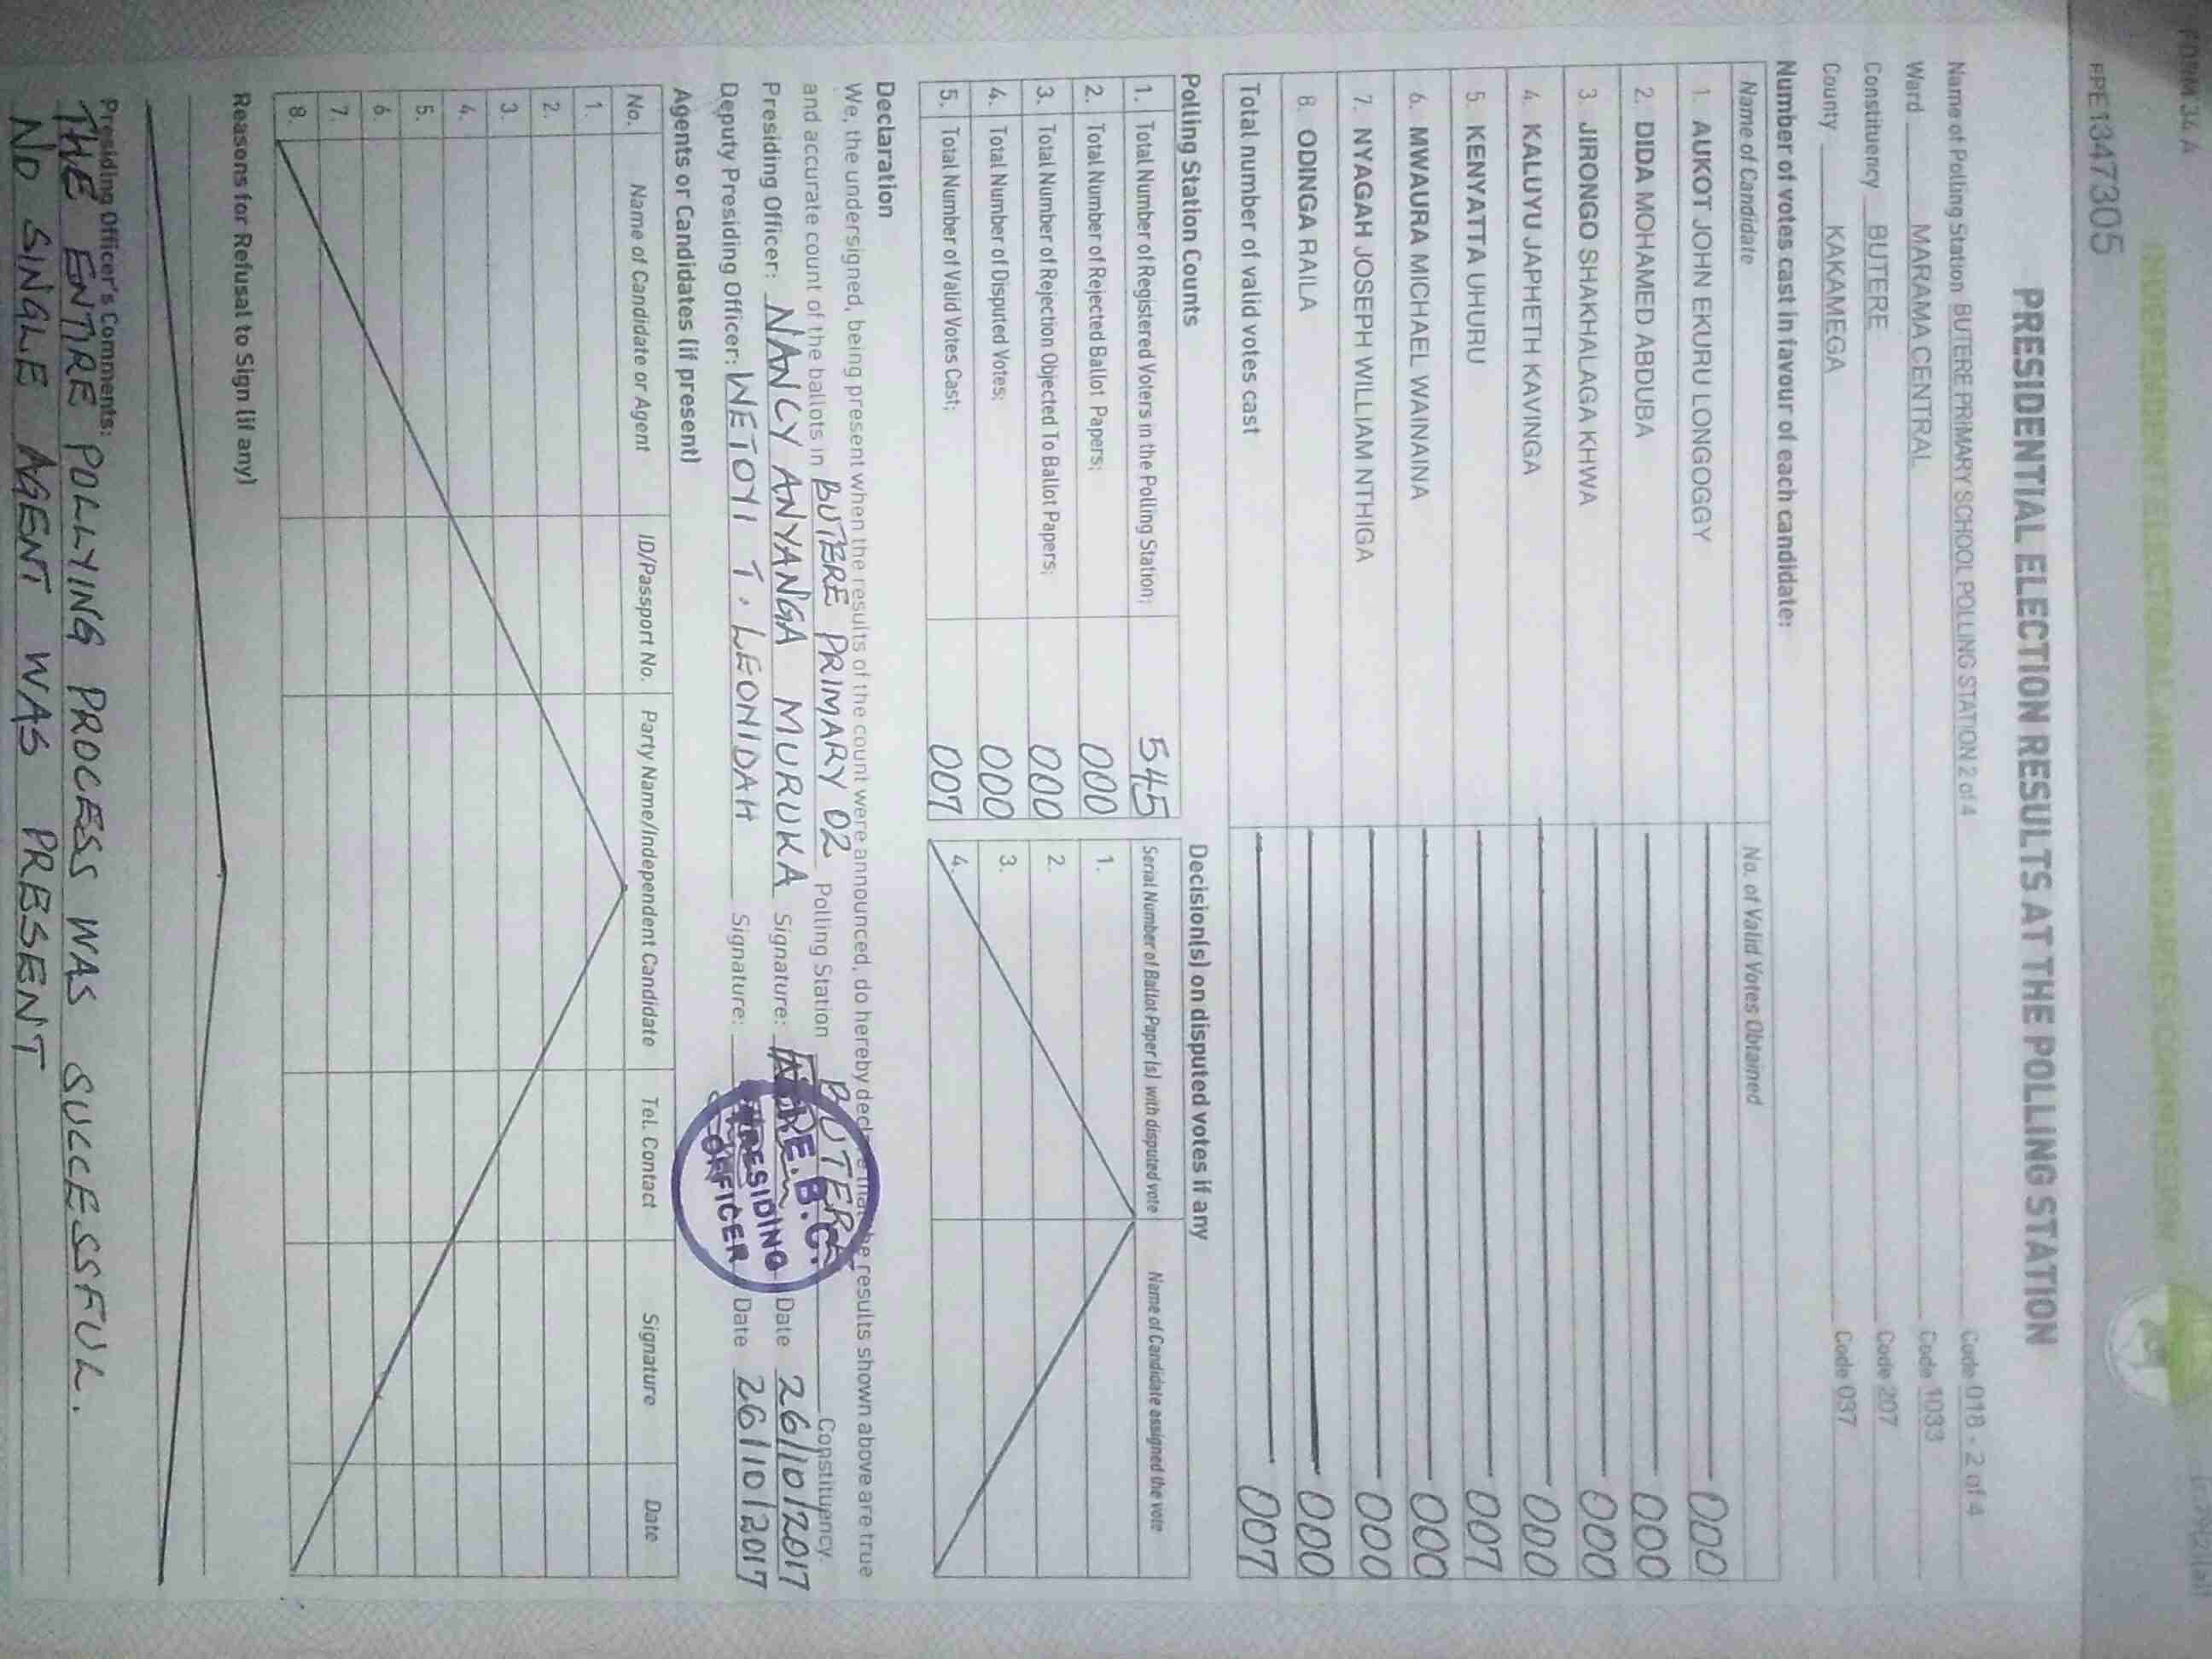 FORM 34 A
INDEPENDENT ELECTORAL AND BOUNDARIES COMMISSION
PPE1347305
PRESIDENTIAL ELECTION RESULTS AT THE POLLING STATION
Name of Polling Station BUTERE PRIMARY SCHOOL POLLING STATION 2 of 4 Code 018 - 2 of 4
Ward MARAMA CENTRAL Code 1033
Constituency BUTERE Code 207
County KAKAMEGA Code 037
Number of votes cast in favour of each candidate:
Name of Candidate No. of Valid Votes Obtained
1. AUKOT JOHN EKURU LONGOGGY 000
2. DIDA MOHAMED ABDUBA 000
3. JIRONGO SHAKHALAGA KHWA 000
4. KALUYU JAPHETH KAVINGA 000
5. KENYATTA UHURU 007
6. MWAURA MICHAEL WAINAINA 000
7. NYAGAH JOSEPH WILLIAM NTHIGA 000
8. ODINGA RAILA 000
Total number of valid votes cast 007
Polling Station Counts
1. Total Number of Registered Voters in the Polling Station; 545
2. Total Number of Rejected Ballot Papers; 000
3. Total Number of Rejection Objected To Ballot Papers; 000
4. Total Number of Disputed Votes; 000
5. Total Number of Valid Votes Cast; 007
Decision(s) on disputed votes if any
Serial Number of Ballot Paper(s) with disputed vote Name of Candidate assigned the vote
1.
2.
3.
4.
Declaration
We, the undersigned, being present when the results of the count were announced, do hereby declare that the results shown above are true
and accurate count of the ballots in BUTERE PRIMARY 02 Polling Station BUTERE Constituency.
Presiding Officer: NANCY ANYANGA MURUKA Signature: Date 26/10/2017
Deputy Presiding Officer: WETOYI T. LEONIDAH Signature: Date 26/10/2017
PRESIDING
OFFICER
Agents or Candidates (if present)
No. Name of Candidate or Agent ID/Passport No. Party Name/Independent Candidate Tel. Contact Signature Date
1.
2.
3.
4.
5.
6.
7.
8.
Reasons for Refusal to Sign (if any)
Presiding Officer's Comments:
THE ENTIRE POLLYING PROCESS WAS SUCCESSFUL.
NO SINGLE AGENT WAS PRESENT